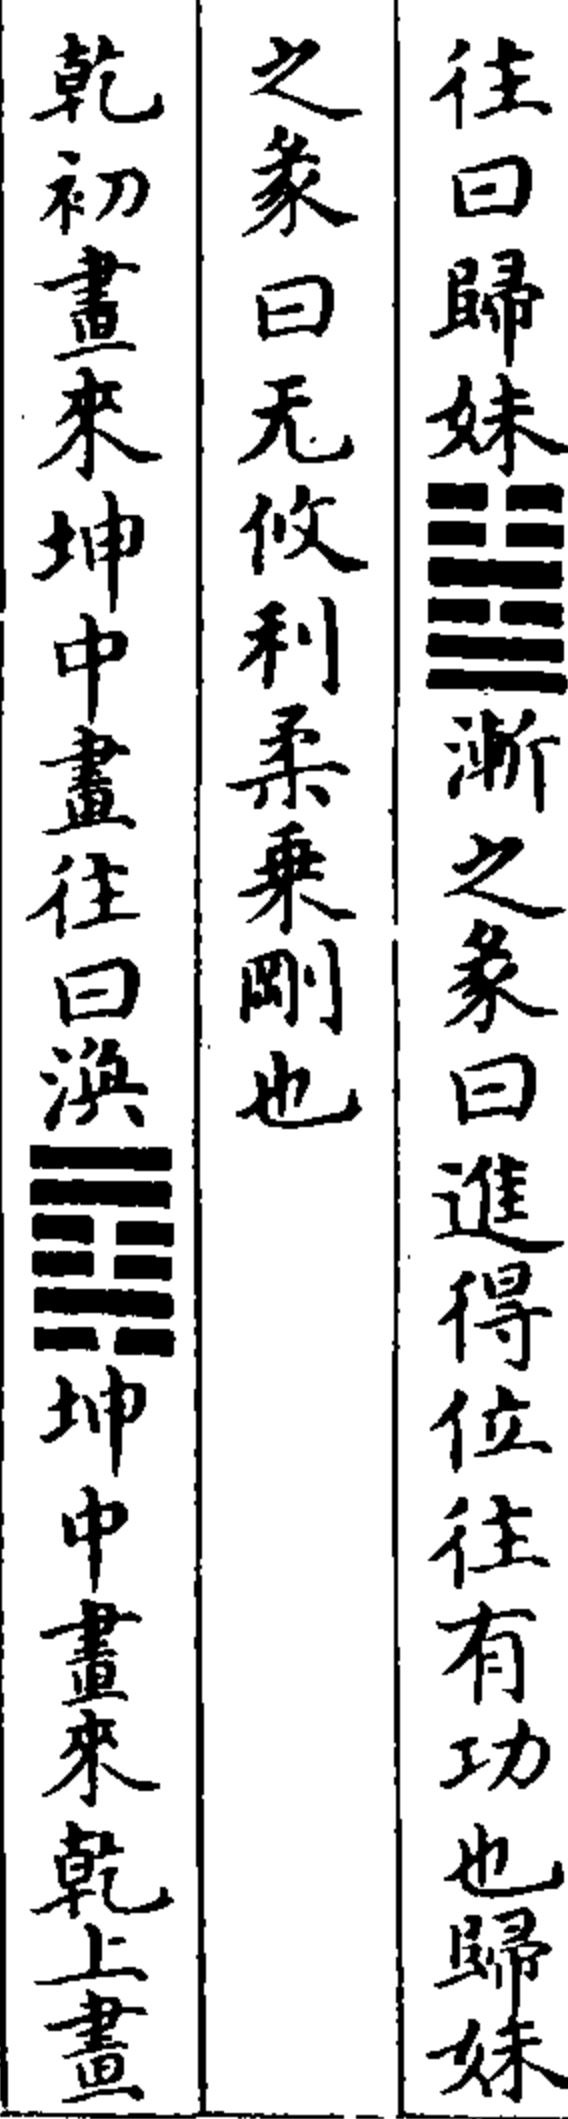 往曰歸妹䷵漸之彖曰進得位往有功也歸妹
之彖曰无攸利柔乗剛也
乾初畫來坤中畫往曰渙䷺坤中畫來乾上畫